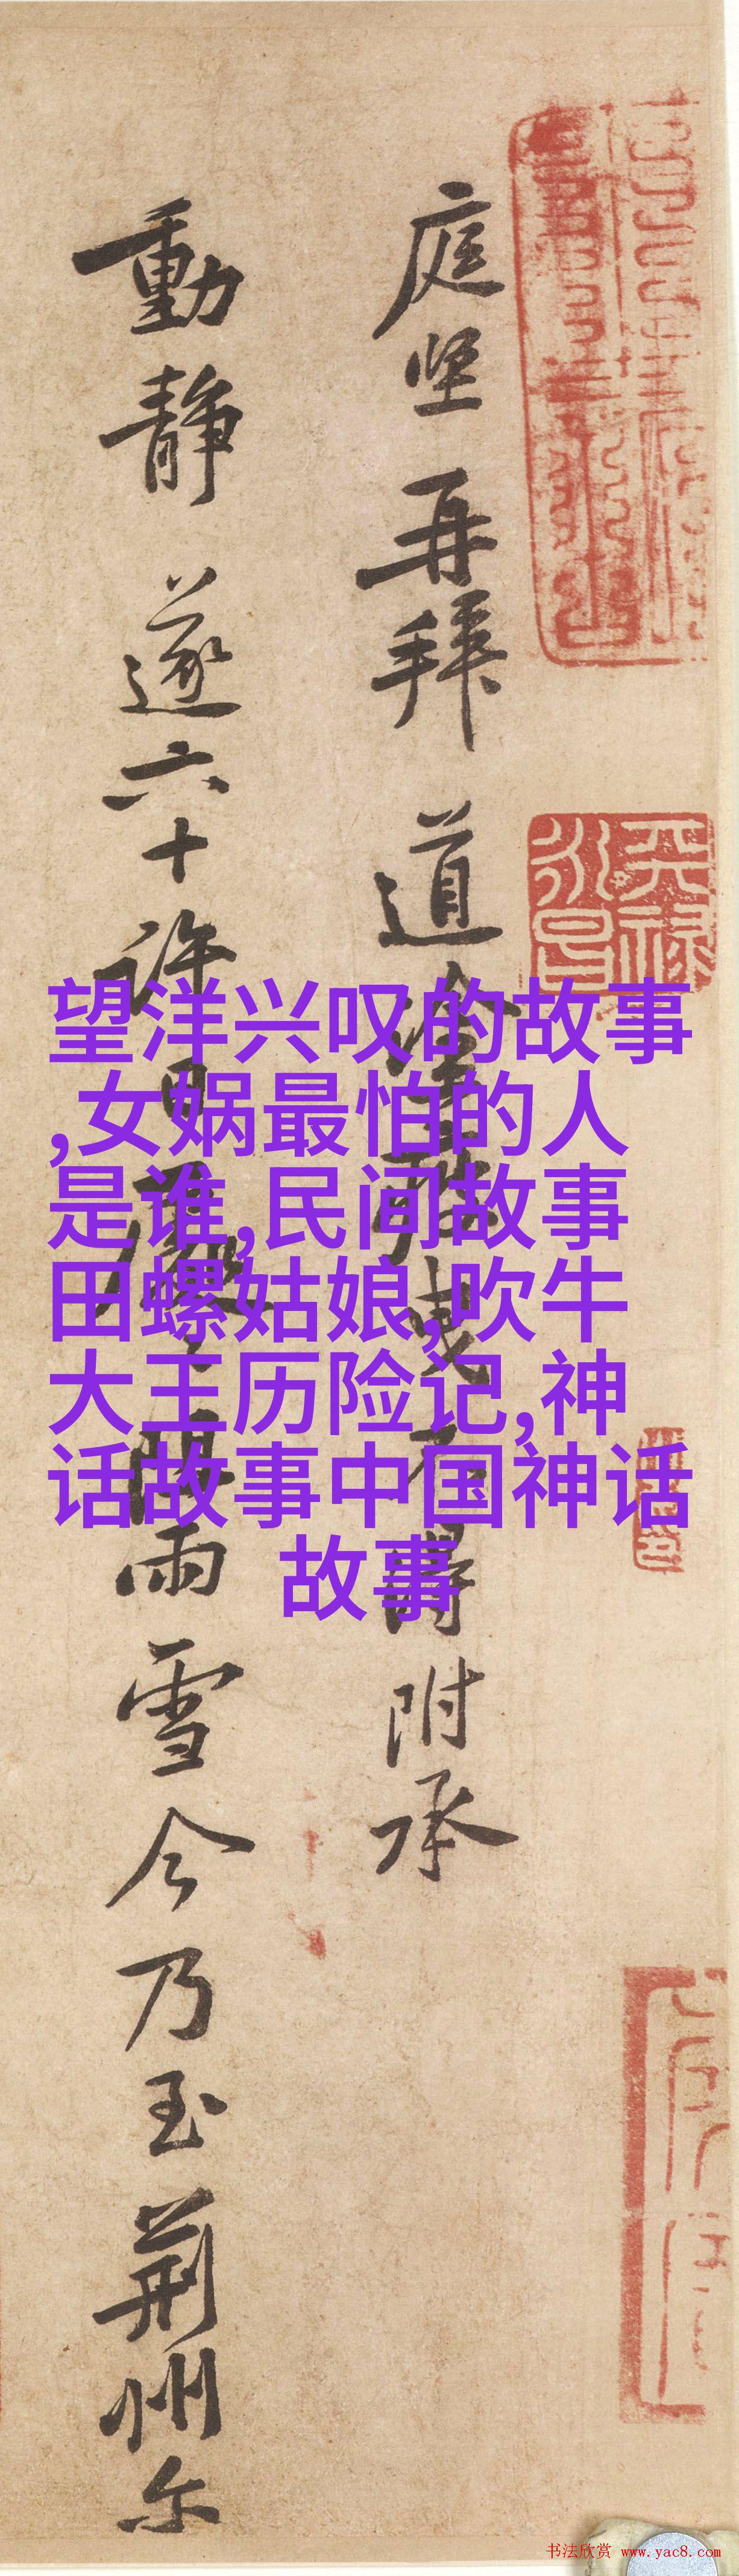 天禄
永昌
庭坚再拜道塗曳不得附承
動静遂六十許日雨雪今乃至荆州尔
望洋兴叹的故事
,女娲最怕的人
是谁,民间故事
田螺姑娘,吹牛
大王历险记,神
话故事中国神话
故事
书法欣赏 www.yac8.com